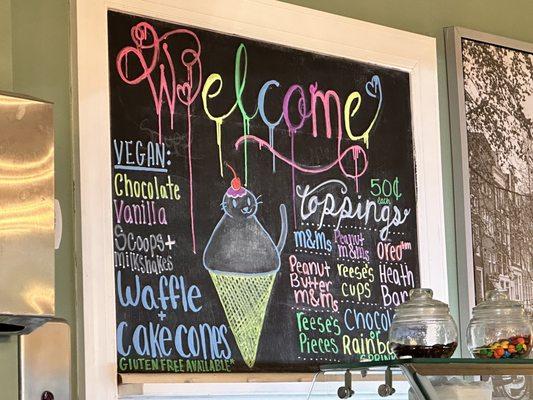 Welcome
VEGAN:
Chocolate
Vanilla
Scoops +
milkshakes
Waffle
+
cake cones
GLUTEN FREE AVAILABLE*
50¢
each
toppings
m&ms
Peanut
m&ms
OREO
Peanut
Butter
m&ms
reese's
cups
Heath
Bar
Reese's
Pieces
Chocol
or
Rainbow